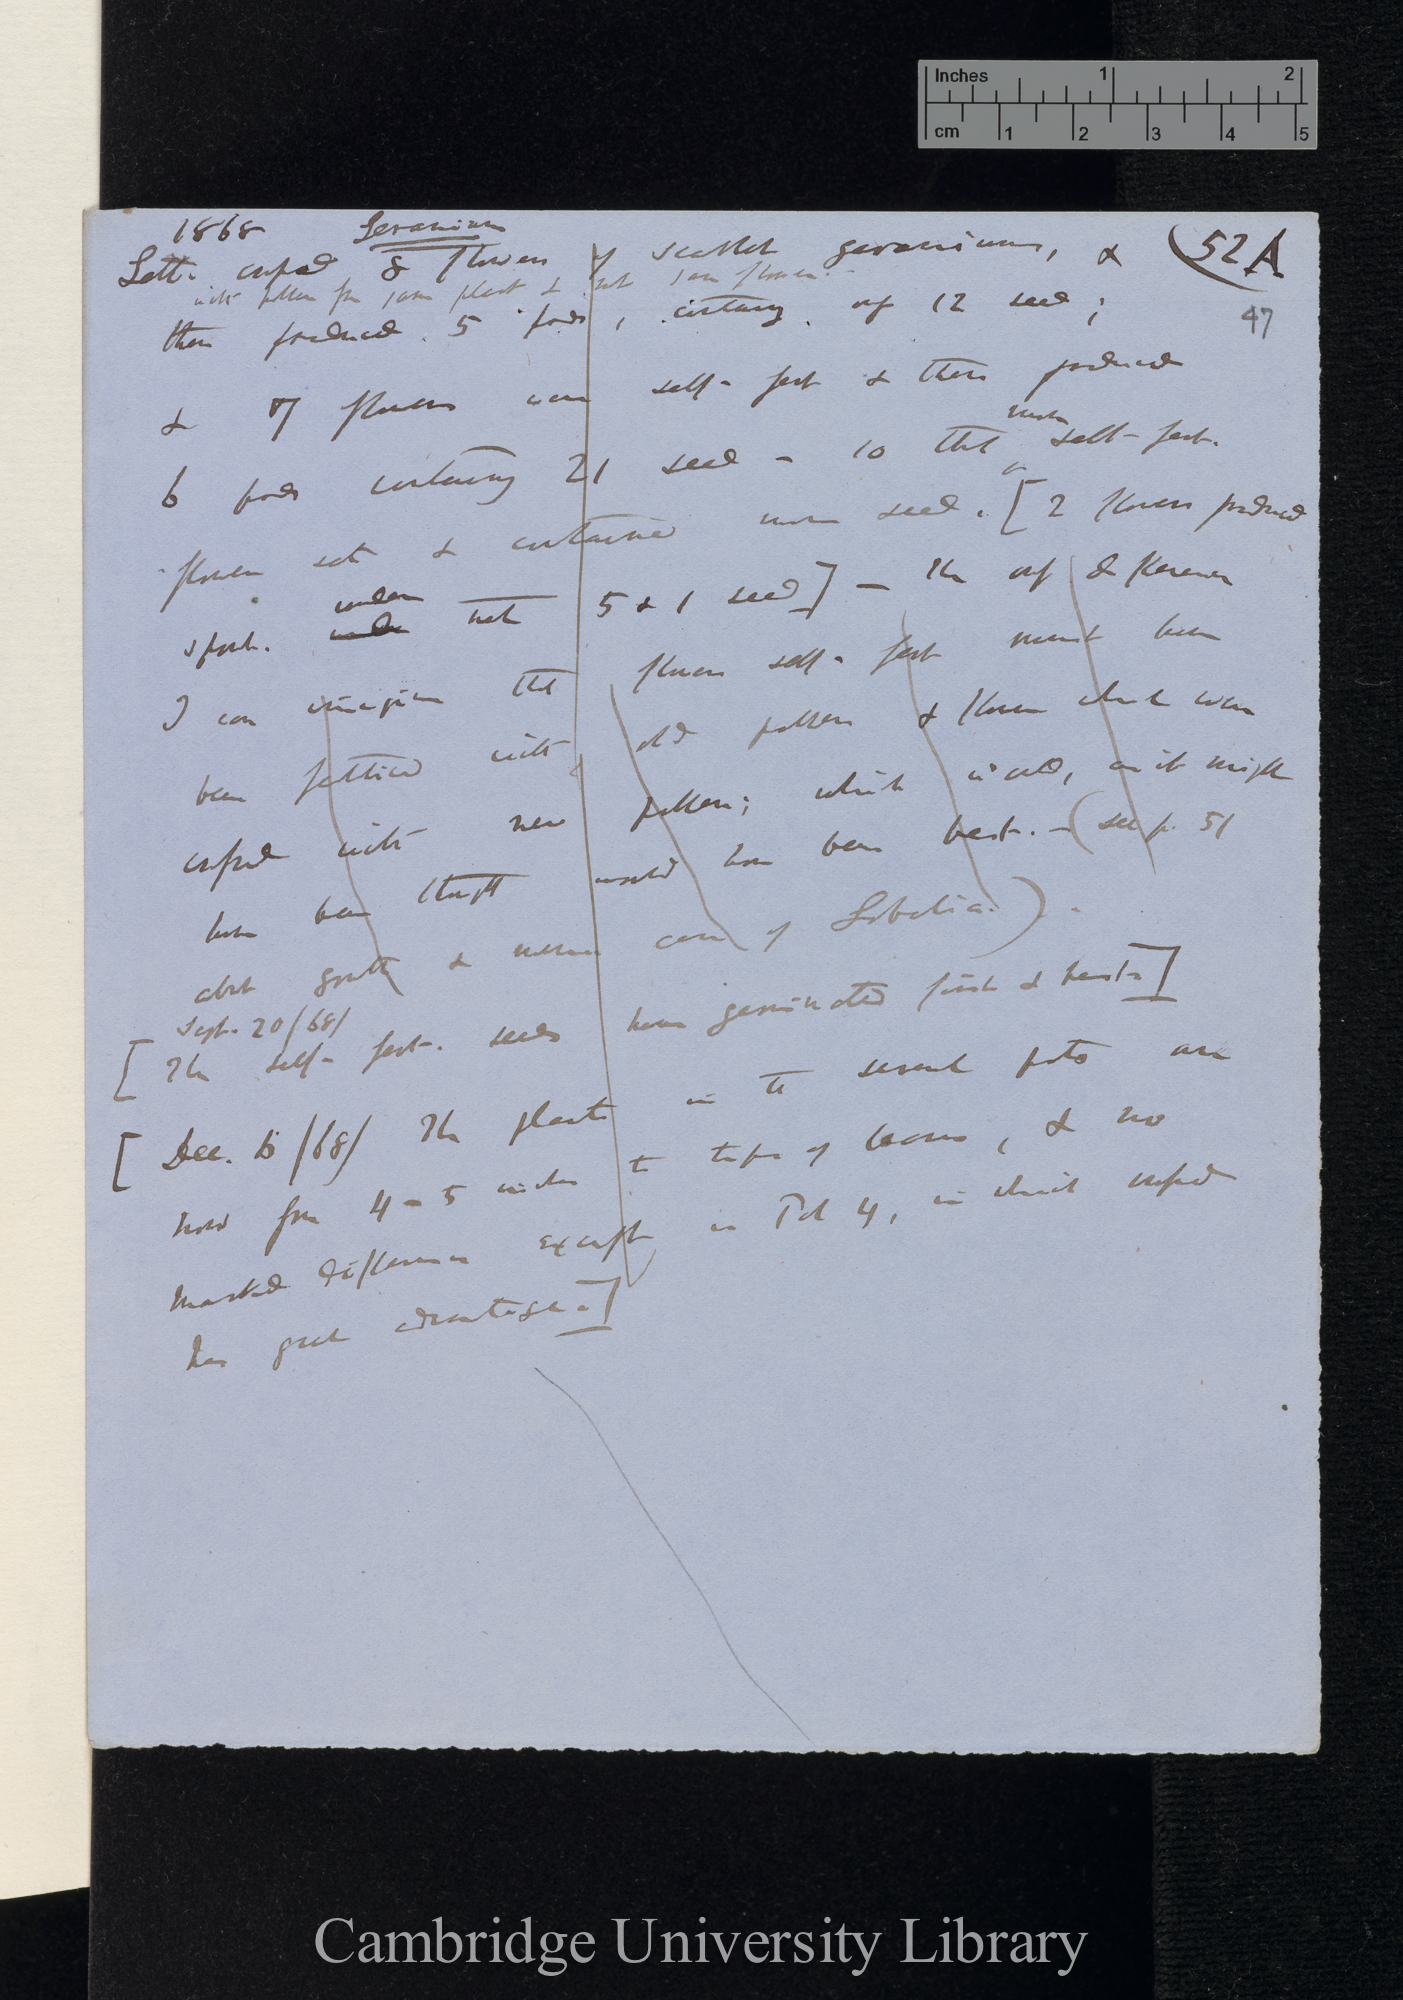 Inches 1 2
cm 1 2 3 4 5
1868 Geranium
52 A
47
Lett. crossed 8 flowers of scarlet geraniums, &
with pollen fr same plant & not same flower.
these produced 5 pods, containing only 12 seed;
& 7 flowers were self-fert & these produced
6 pods containing 21 seed – so that more self-fert.
flowers set & contained more seed. [2 flowers produced
spont. under net 5 & 1 seed] — The only difference
I can imagine that flowers self-fert must have
been fertilised with old pollen & flowers which were
crossed with new pollen; which is odd, as it might
have been thought would have been best. – (see p. 51
about growth & inverse case of Lobelia.).
Sept. 20/68/
[The self-fert. seeds have germinated first & best.]
[Dec. /68/ The plants in the several pots are
now from 4–5 inches to tips of leaves, & no
marked difference except in Pot 4, in which crossed
has great advantage.]
Cambridge University Library